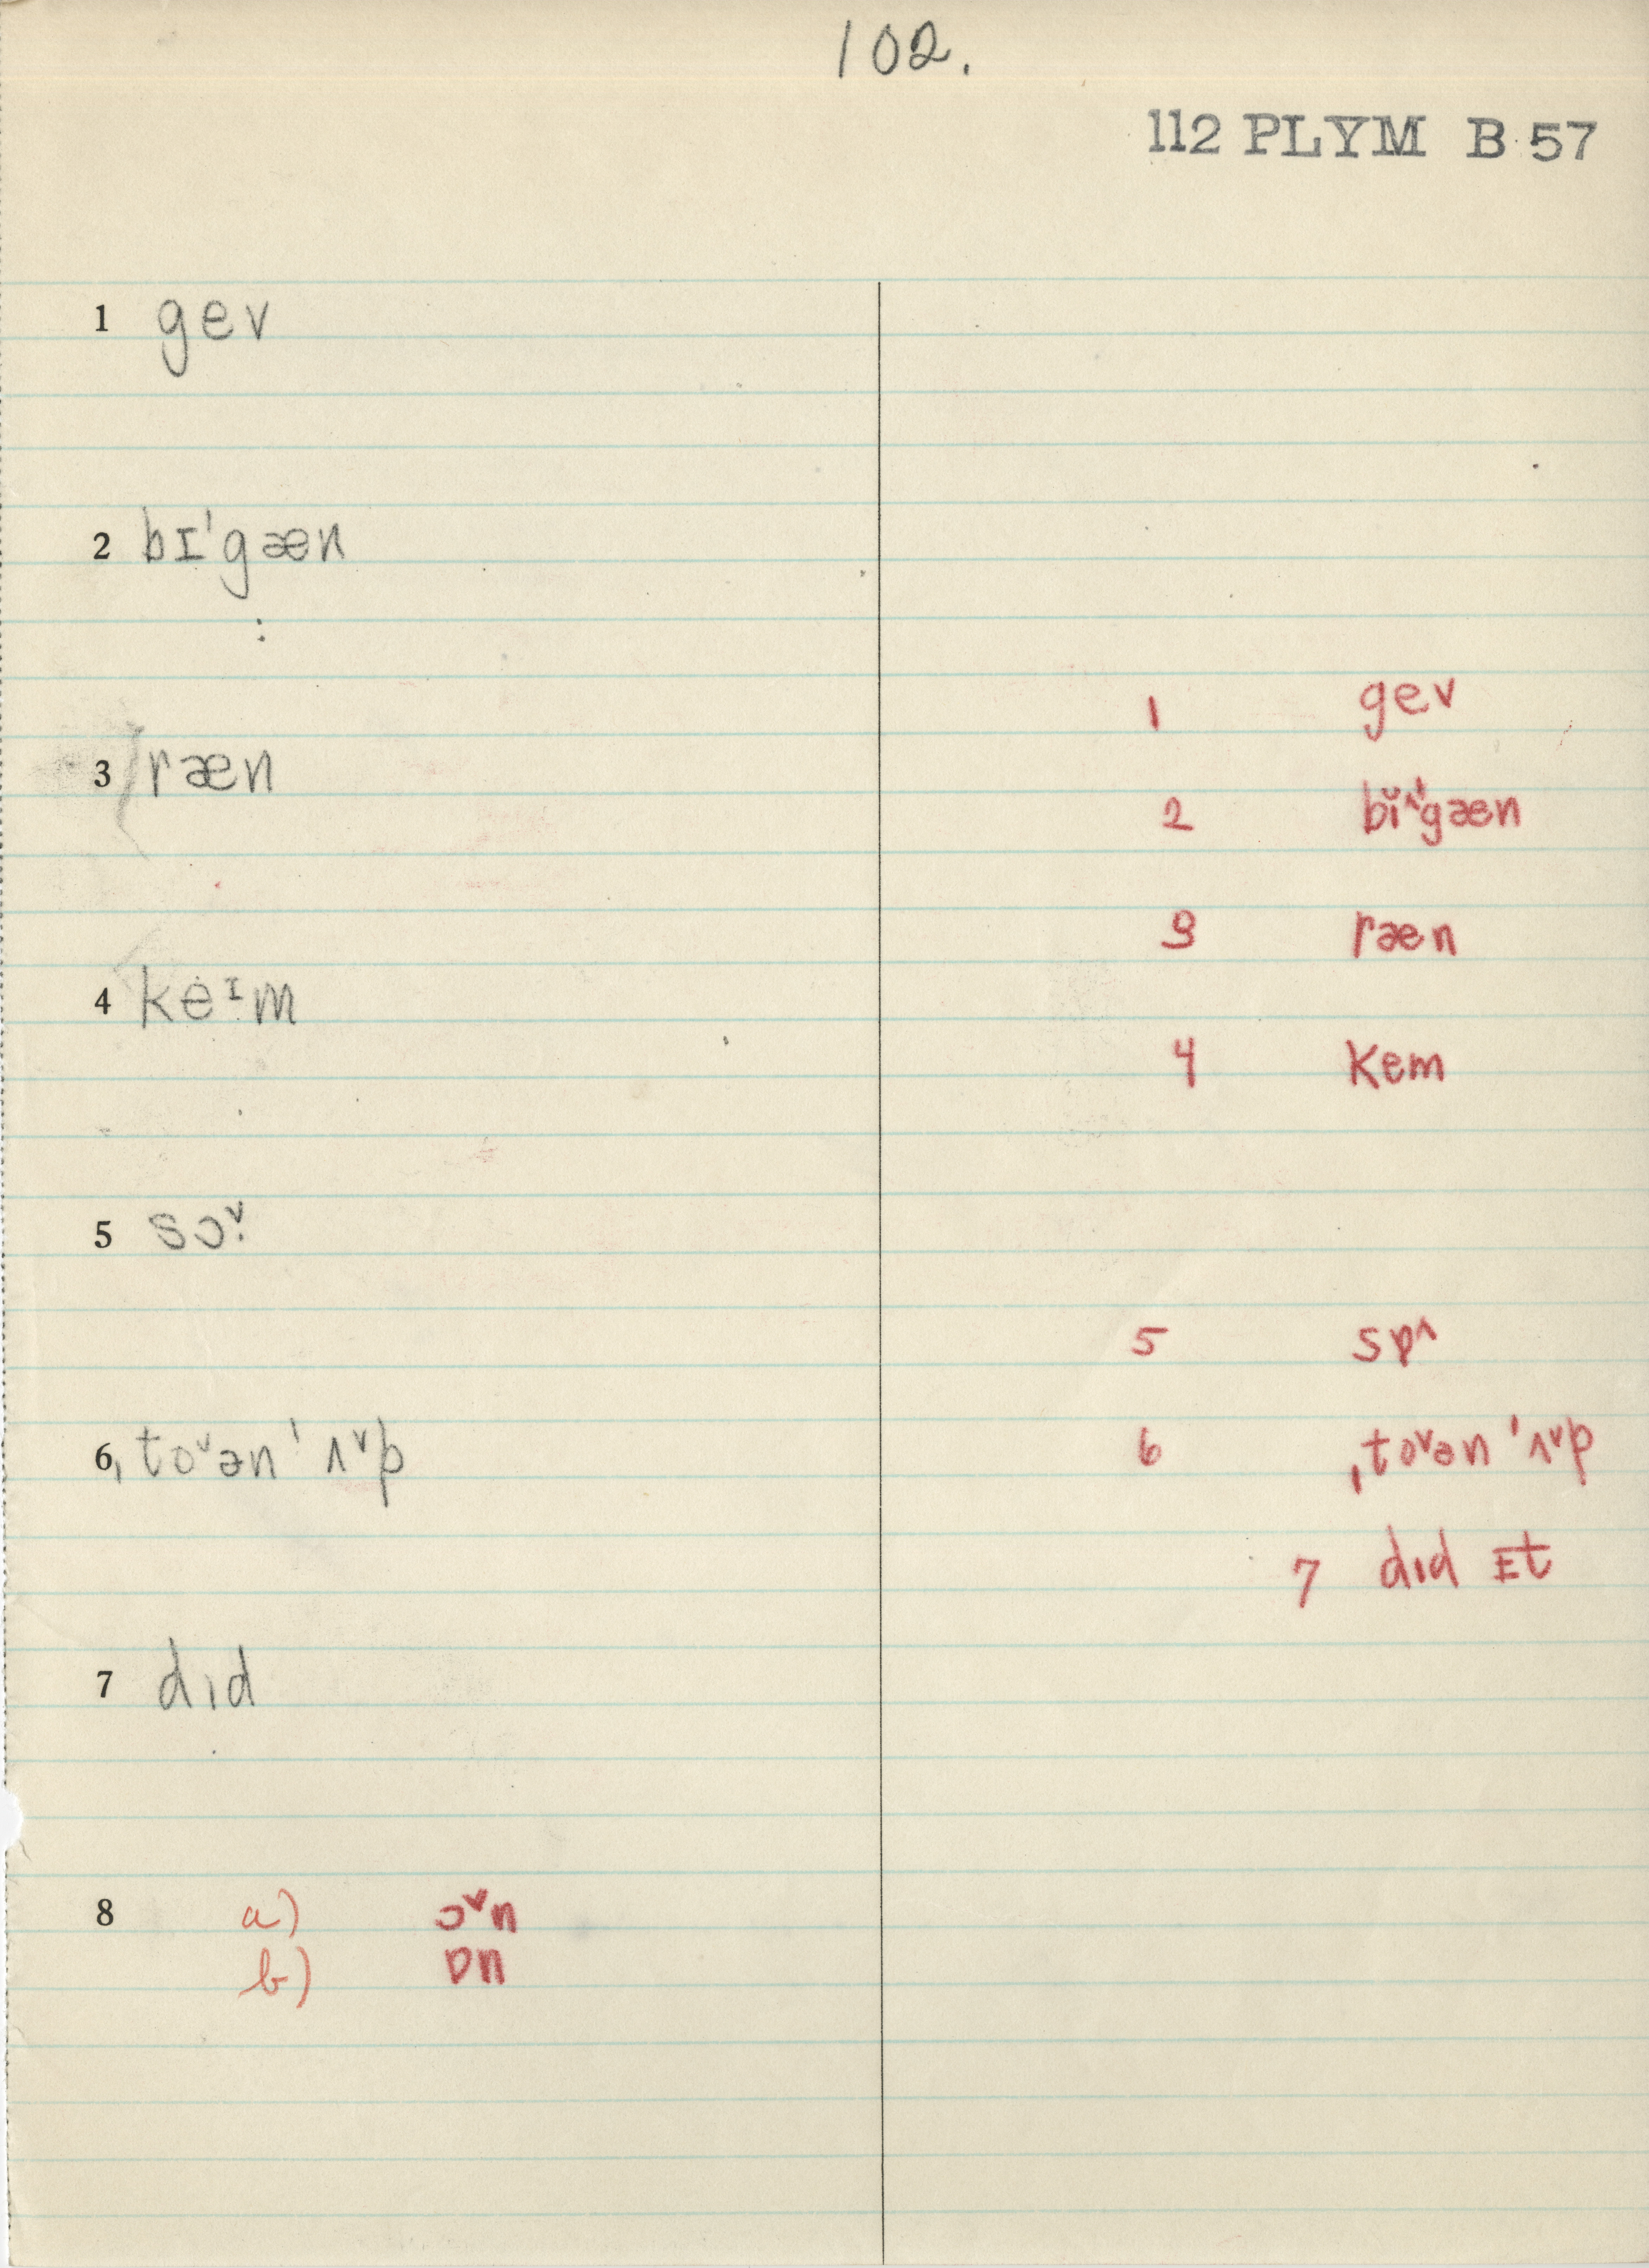 102.
112 PLYM B 57
1 gev
2 bɪˈgæn
3 ræn
4 ke̍ᶦm
5 sɔ˅.
6 ˌto˅ən ˈʌ˅p
7 dıd
8 a) ɔ˅n
b) ɒn
1 gev
2 bĭ˄ˈgæn
3 ræn
4 kem
5 sɒ˄
6 ˌto˅ən ˈʌ˅p
7 dıd ɪt